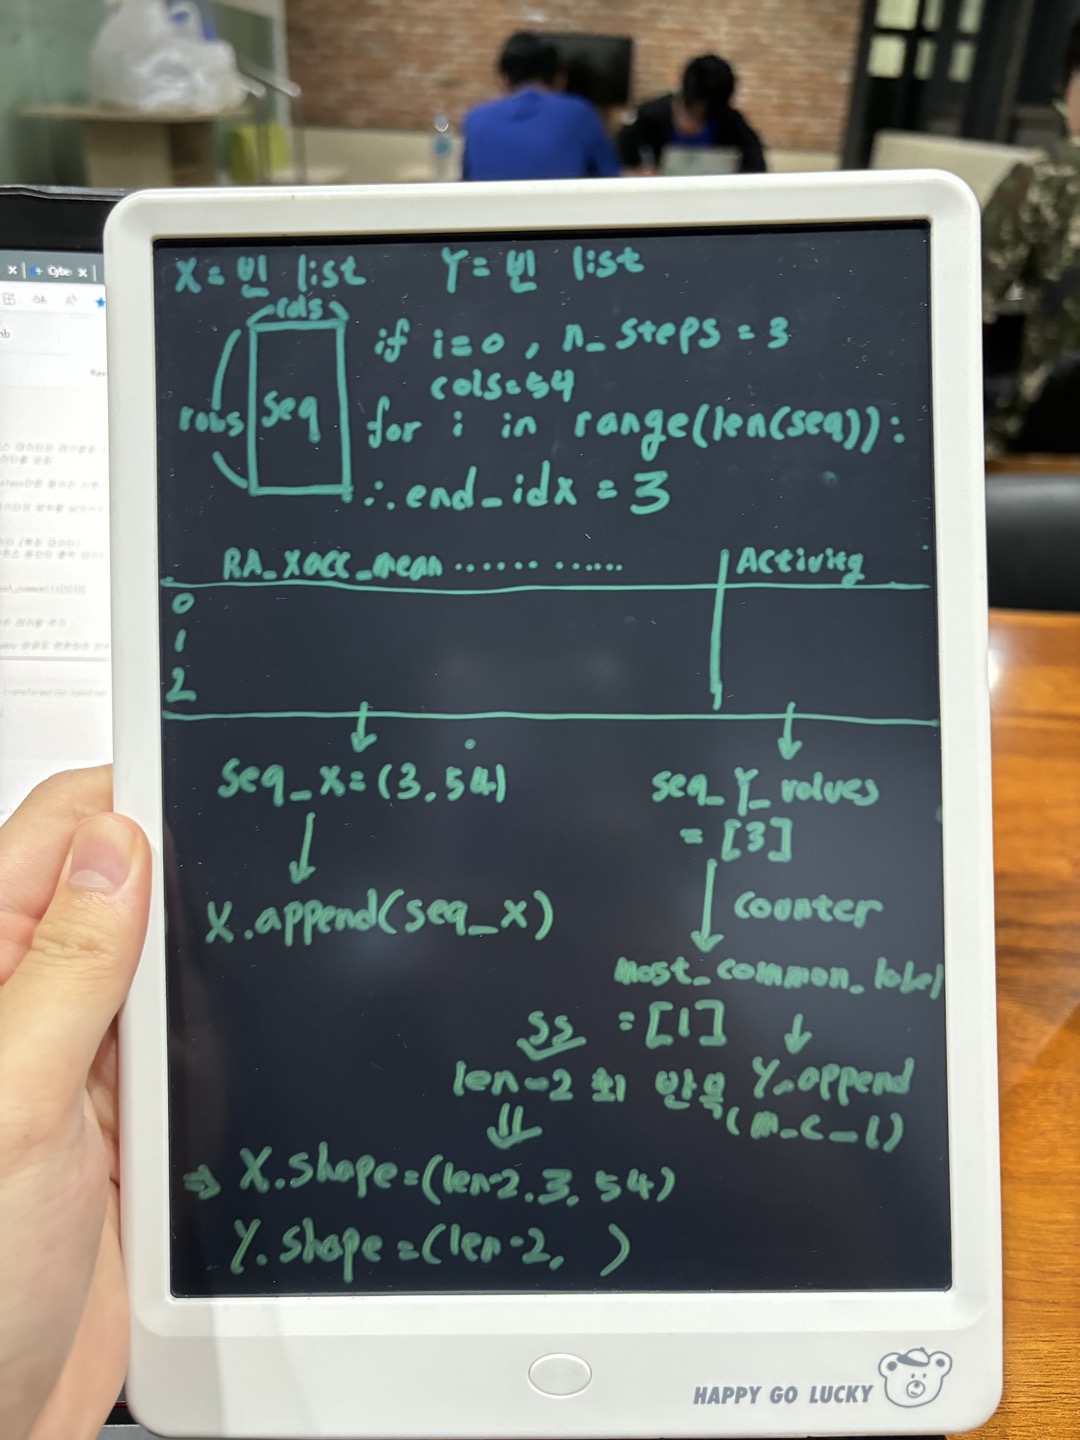 X = 빈 list Y = 빈 list
cols
rows
seq
if i=0, n_steps = 3
cols=54
for i in range(len(seq)):
∴ end_idx = 3
RA_Xacc_mean ............ Activity
0
1
2
seq_X=(3,54)
X.append(seq_x)
seq_Y_values
= [3]
counter
most_common_label
= [1]
ss
len-2 회 반복
Y.append
(m_c_l)
⇒ X.shape=(len-2.3, 54)
Y.shape=(len-2, )
HAPPY GO LUCKY
Cybe